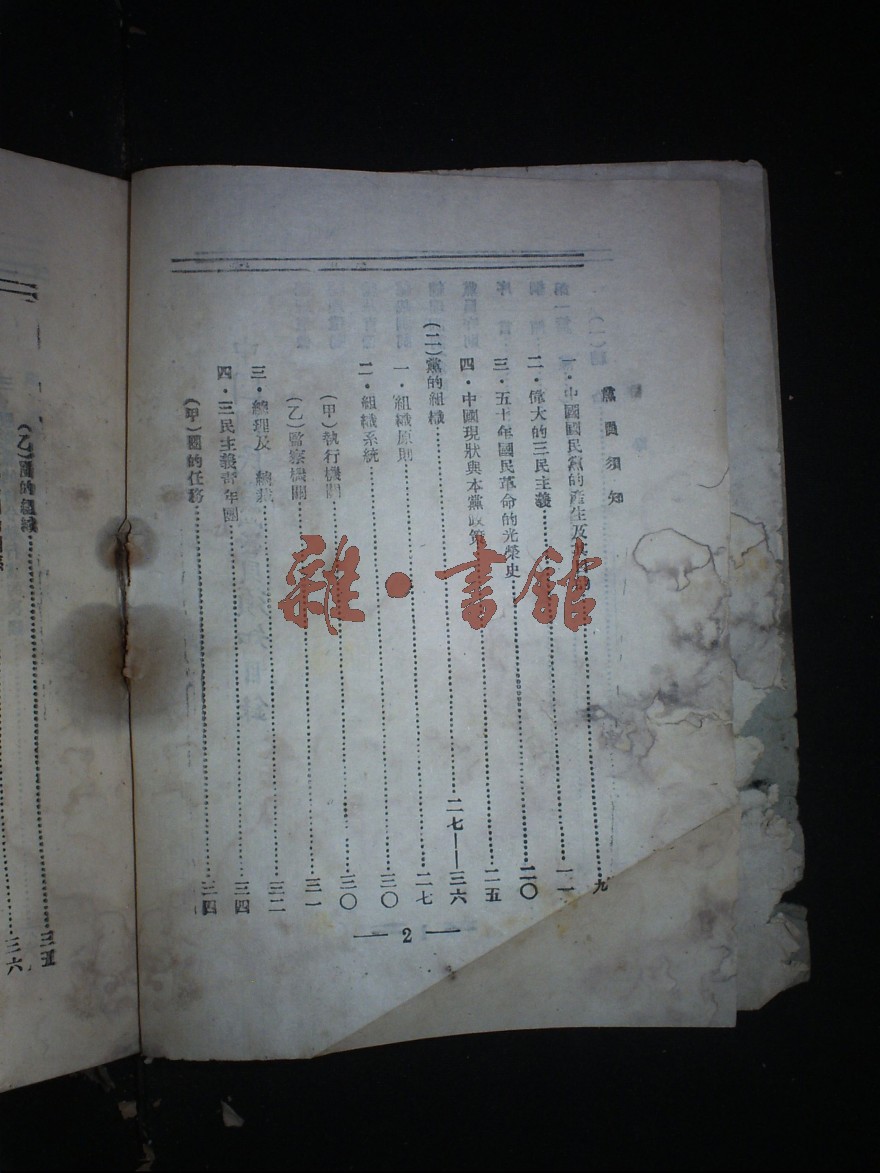 黨員須知
一·中國國民黨的產生及……九
二·偉大的三民主義……一一
三·五十年國民革命的光榮史……二〇
四·中國現狀與本黨政策……二五
(二)黨的組織……二七——三六
一·組織原則……二七
二·組織系統……三〇
(甲)執行機關……三〇
(乙)監察機關……三一
三·總理及 總裁……三二
四·三民主義青年團……三四
(甲)團的任務……三四
— 2 —
(乙)團的組織……三五
三六
雜·書館